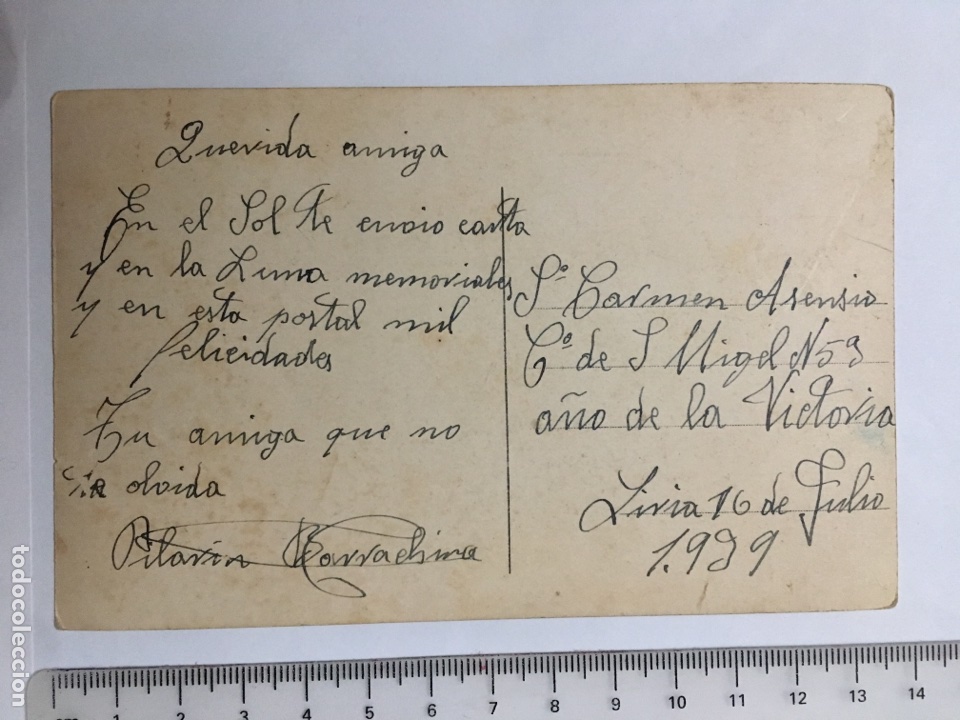 Querida amiga
En el Sol te envio carta
y en la Luna memoriales
y en esta postal mil
felicidades
Tu amiga que no
olvida
Pilarin Barrachina
Sª Carmen Asensio
Cª de S Migel N 53
año de la Victoria
Liria 16 de Julio
1.939
todocoleccion
cm 1 2 3 4 5 6 7 8 9 10 11 12 13 14